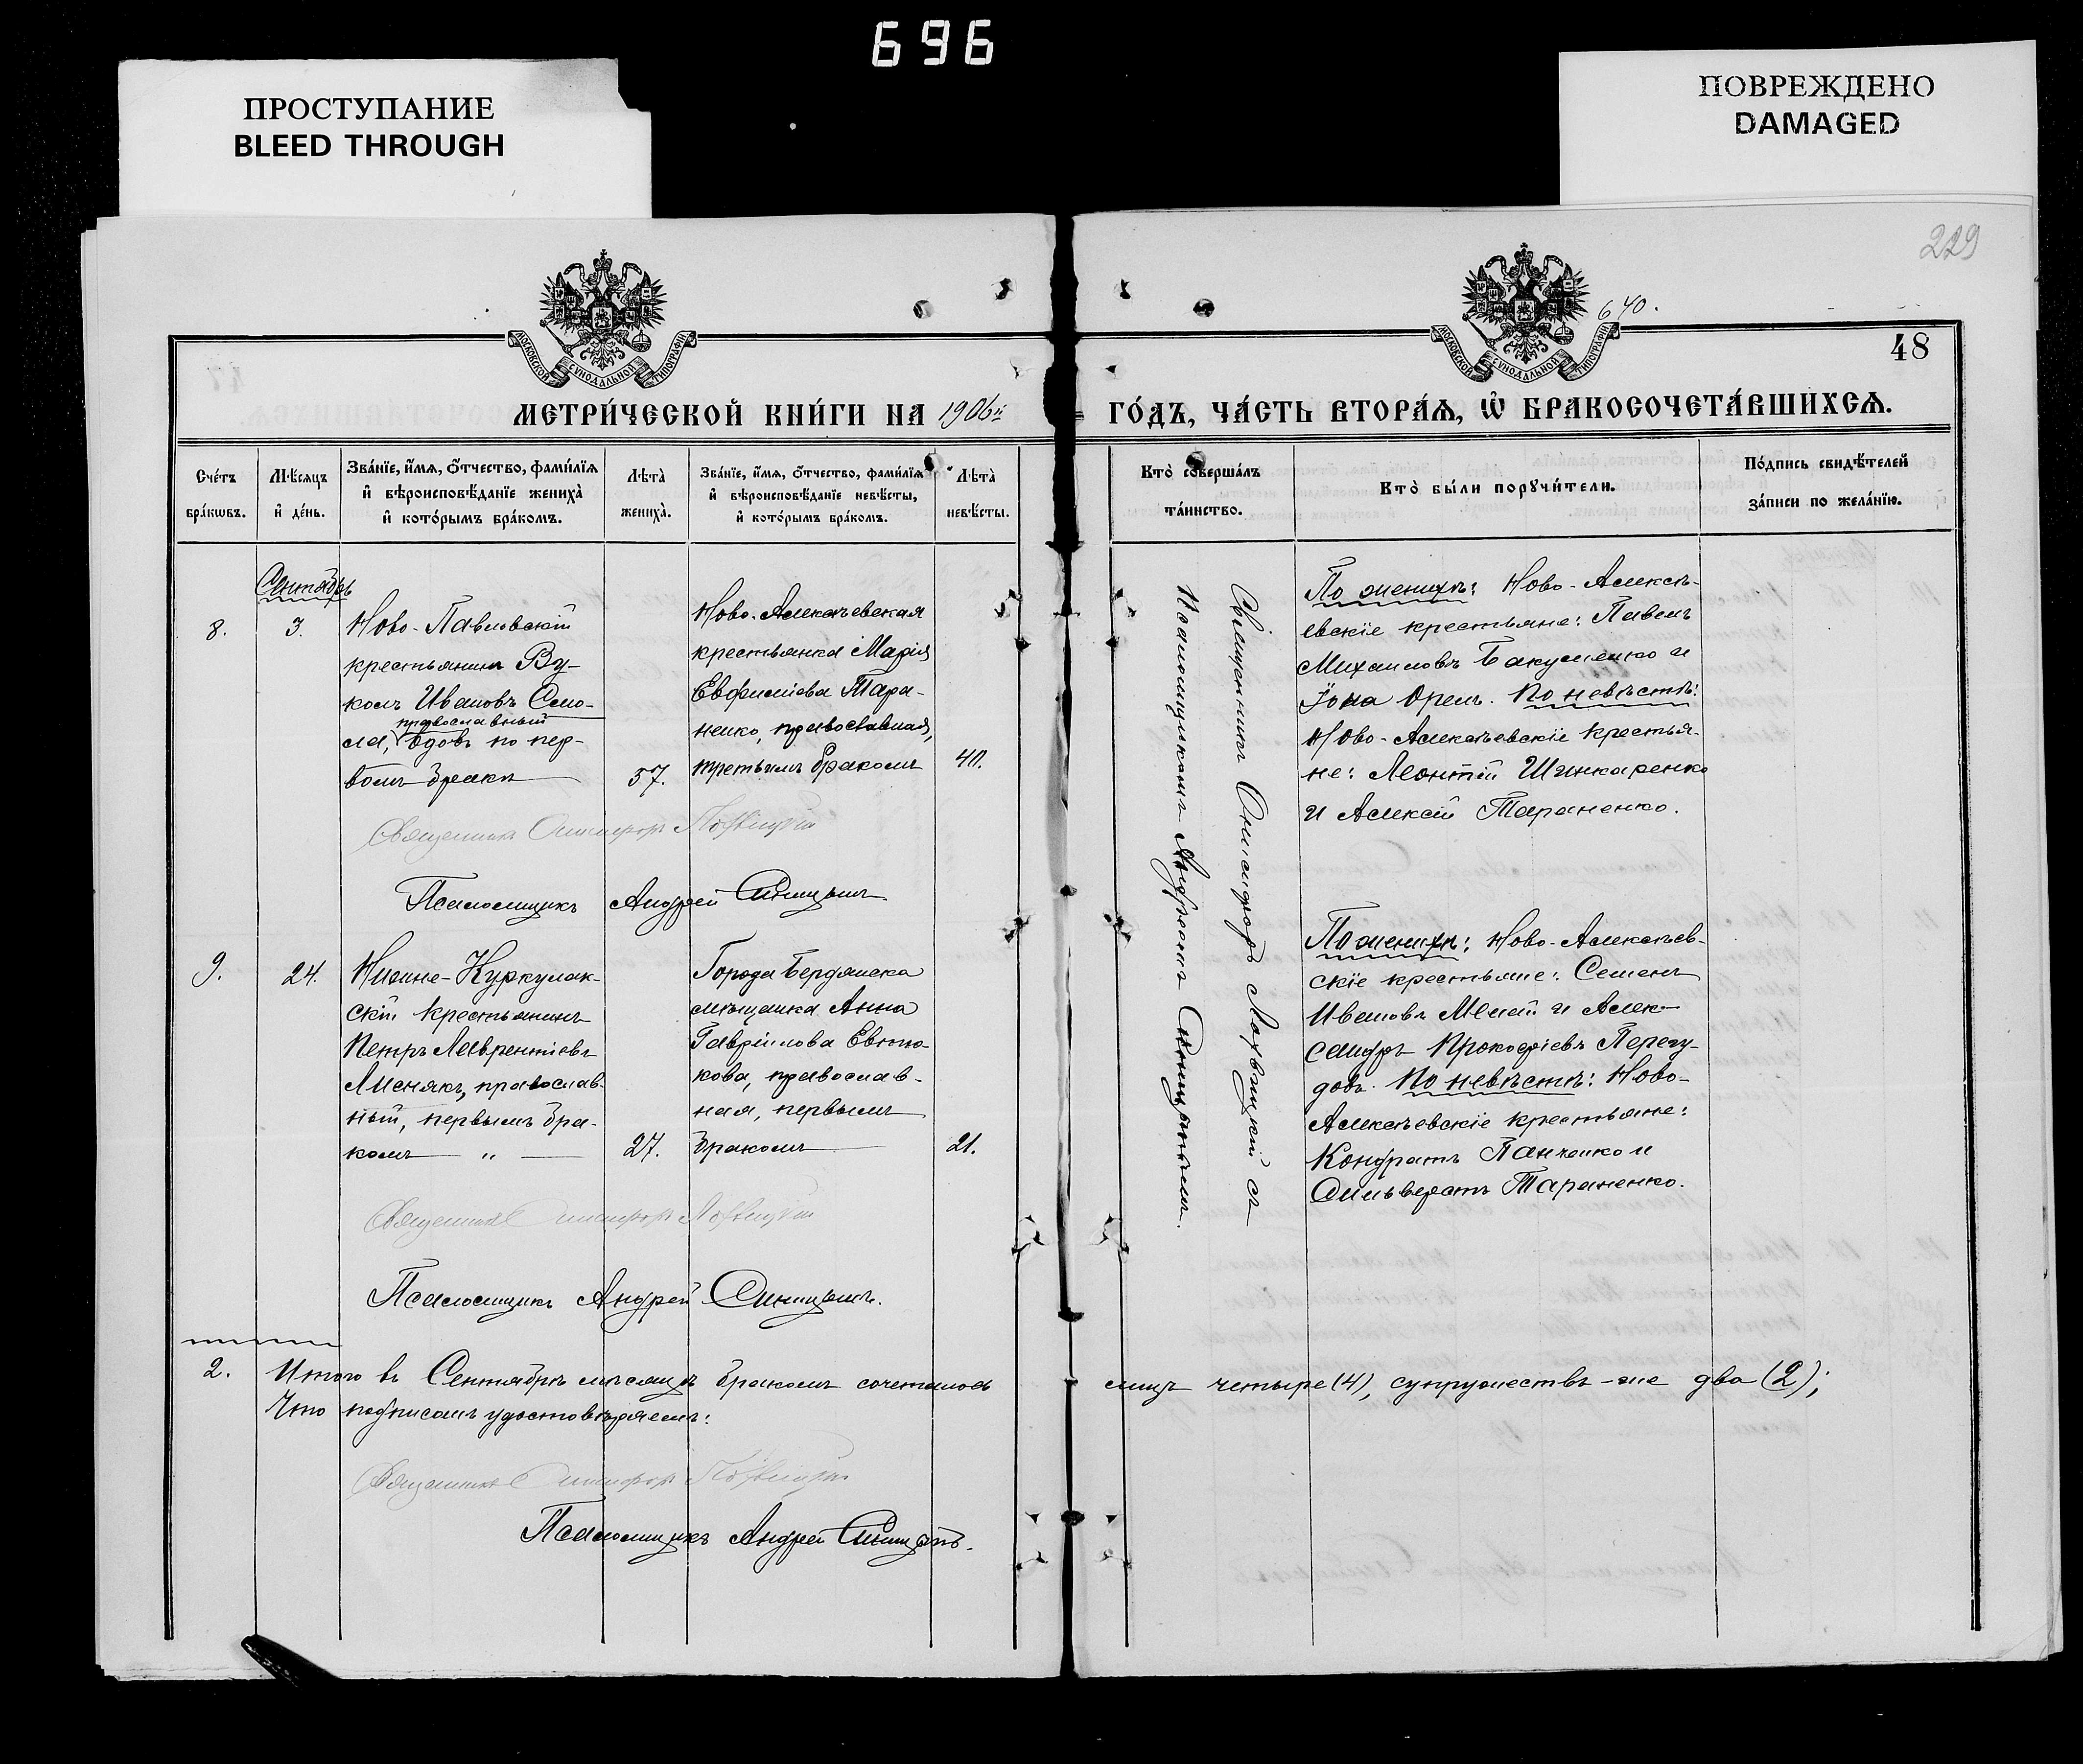 696
ПРОСТУПАНИЕ
BLEED THROUGH
ПОВРЕЖДЕНО
DAMAGED
229
640.
МОСКОВСКОЙ СѴНОДАЛЬНОЙ ТИПОГРАФІИ
МОСКОВСКОЙ СѴНОДАЛЬНОЙ ТИПОГРАФІИ
48
МЕТРИ́ЧЕСКОЙ КНИ́ГИ НА 1906й ГО́ДЪ, ЧА́СТЬ ВТОРА́Ѧ, Ѽ БРАКОСОЧЕТА́ВШИХСѦ.
Сче́тъ
бра́кѡвъ.
Мѣ́сяцъ
и҆ де́нь.
Зва́нїе, и҆́мѧ, ѻ҆́тчество, фами́лїѧ
и҆ вѣроисповѣ́данїе жениха̀
и҆ кото́рымъ бра́комъ.
Лѣта̀
жениха̀.
Зва́нїе, и҆́мѧ, ѻ҆́тчество, фами́лїѧ
и҆ вѣроисповѣ́данїе невѣ́сты,
и҆ кото́рымъ бра́комъ.
Лѣта̀
невѣ́сты.
Кто̀ соверша́лъ
та́инство.
Кто̀ бы́ли порꙋчи́тели.
По́дпись свидѣ́телей
за́писи по жела́нїю.
Сентябрь
8.
3.
Ново-Павловскій
крестьянинъ Ву-
колъ Ивановъ Смо-
православный
ла, вдовъ по пер-
вомъ бракѣ
57.
Ново-Алексѣевская
крестьянка Марія
Евфиміева Тара-
ненко, православная,
третьимъ бракомъ
40.
Священникъ Онисифоръ Лохвицкій съ
Псаломщикомъ Андреемъ Синицынымъ.
По женихѣ: Ново-Алексѣ-
евскіе крестьяне: Павелъ
Михаиловъ Бакуменко и
Іона Орелъ. По невѣстѣ:
Ново-Алексѣевскіе крестья-
не: Леонтій Шинкаренко
и Алексѣй Тараненко.
Священникъ Онисифоръ Лохвицкій
Псаломщикъ Андрей Синицынъ
9.
24.
Нижне-Куркулак-
скій крестьянинъ
Петръ Лаврентіевъ
Лиснякъ, православ-
ный, первымъ бра-
комъ — „ —
27.
Города Бердянска
мѣщанка Анна
Гавріилова Евтю-
кова, православ-
ная, первымъ
бракомъ
21.
По женихѣ: Ново-Алексѣев-
скіе крестьяне: Семенъ
Ивановъ и Алек-
сандръ Прокофіевъ Перегу-
довъ. По невѣстѣ: Ново-
Алексѣевскіе крестьяне:
Кондратъ Панченко и
Сильверстъ Тараненко.
Священникъ Онисифоръ Лохвицкій
Псаломщикъ Андрей Синицынъ.
2. Итого въ Сентябрѣ мѣсяцѣ бракомъ сочеталось лицъ четыре (4), супружествъ-же два (2);
Что подписомъ удостовѣряемъ:
Священникъ Онисифоръ Лохвицкій
Псаломщикъ Андрей Синицынъ.